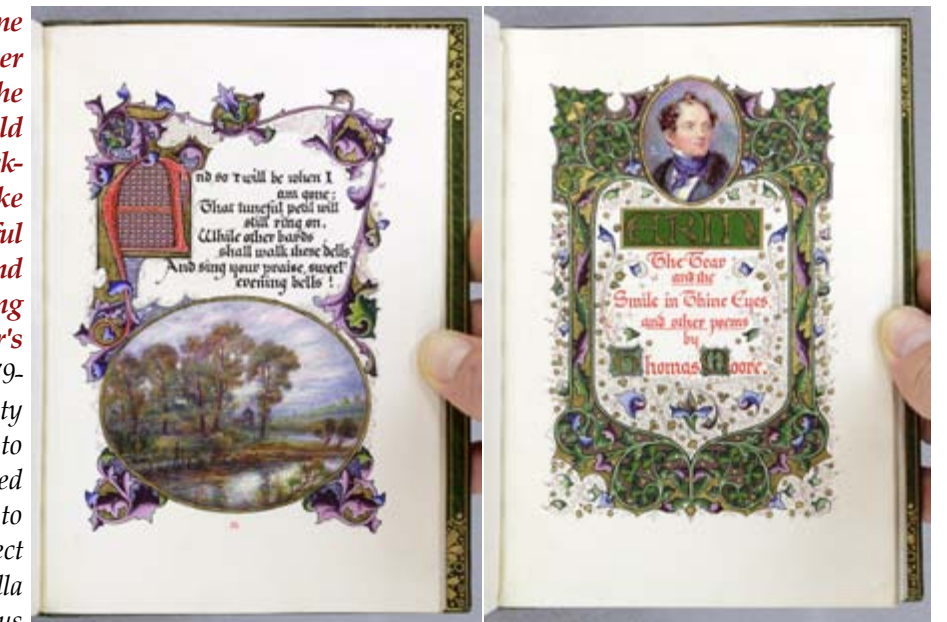 ne
er
he
ld
k-
ke
ful
nd
ng
r's
79-
ty
to
ed
to
ect
lla
us
And so 'twill be when I
am gone;
That tuneful peal will
still ring on,
While other bards
shall walk these dells,
And sing your praise, sweet
evening bells !
ERIN
The Tear
and the
Smile in Thine Eyes
and other poems
by
Thomas Moore.